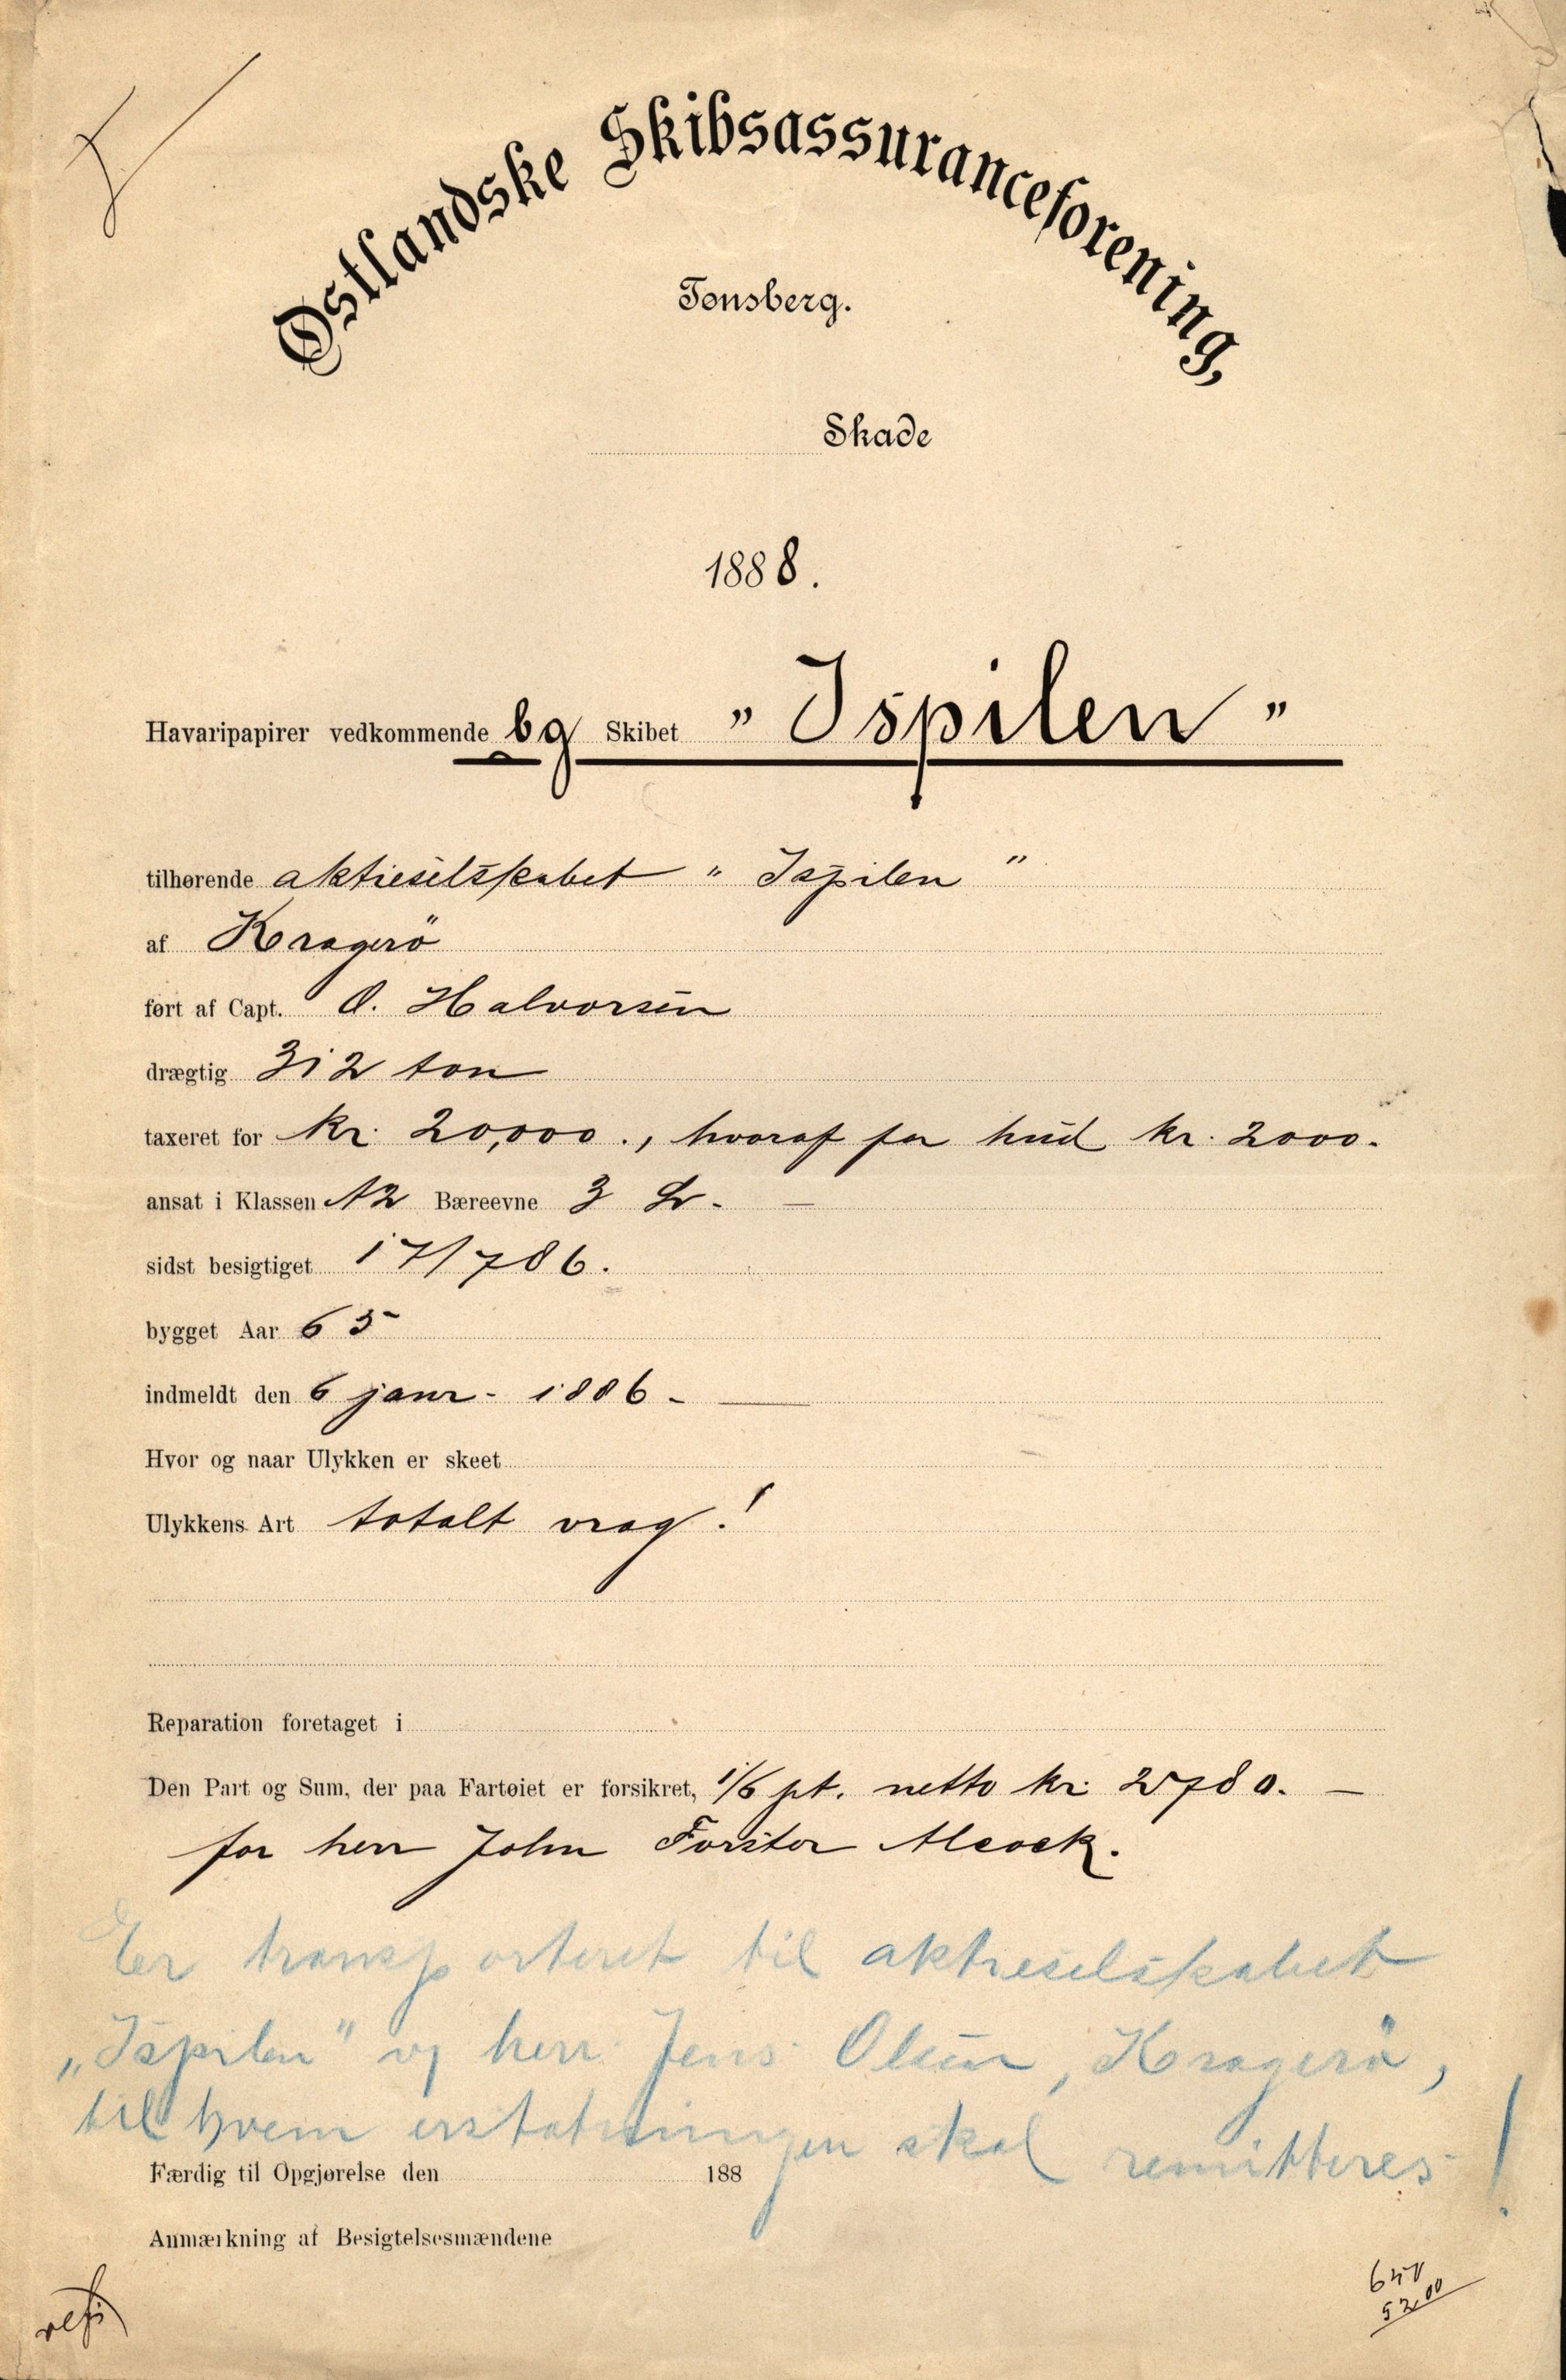 Østlandske Skibsassuranceforening,
Tønsberg.
Skade
1888.
Havaripapirer vedkommende bg Skibet „ Ispilen "
tilhørende aktieselskabet „ Ispilen "
af Kragerö
ført af Capt. O. Halvorsen
drægtig 312 ton
taxeret for kr. 20,000., hvoraf for hud kr. 2000.
ansat i Klassen A2 Bæreevne 3
sidst besigtiget 17/7 86.
bygget Aar 65
indmeldt den 6 janr - 1886 -
Hvor og naar Ulykken er skeet
Ulykkens Art totalt vrag !
Reparation foretaget i
Den Part og Sum, der paa Fartøiet er forsikret, 1/6 pt. netto kr 2780. —
for herr John Forster Alcock.
Er transporteret til aktieselskabet
„Ispilen" v/ herr Jens Olsen, Kragerö,
til hvem erstatningen skal remitteres !
Færdig til Opgjørelse den 188
Anmærkning af Besigtelsesmændene